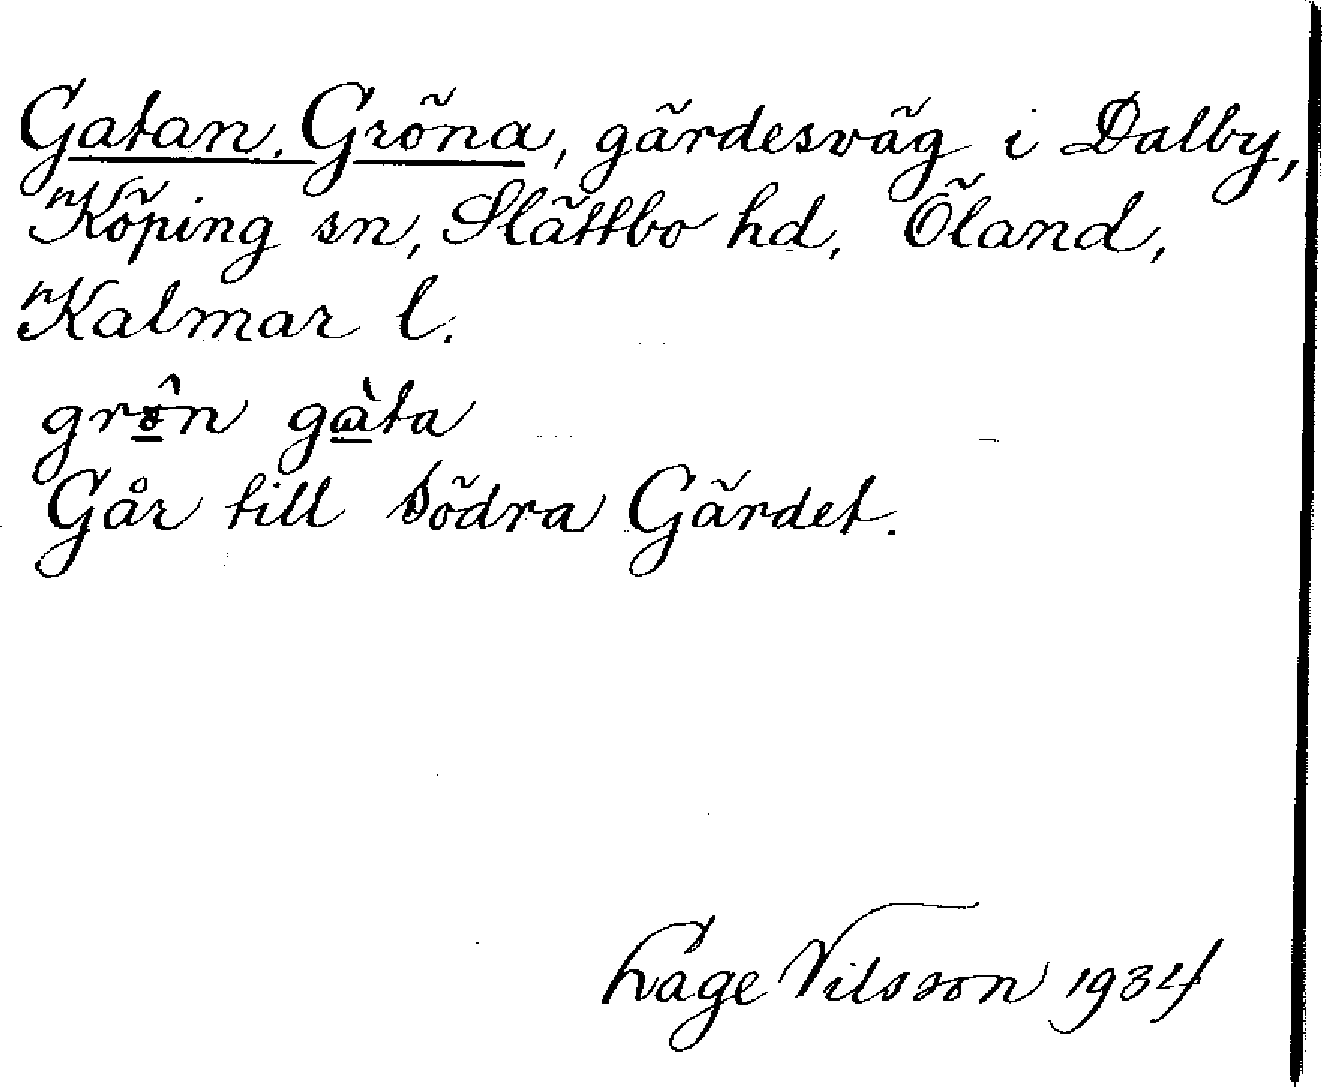 Gatan, Gröna, gärdesväg i Dalby,
Köping sn, Slättbo hd, Öland,
Kalmar l.
grö̂n gàta
Går till Södra Gärdet.
Lage Nilsson 1934